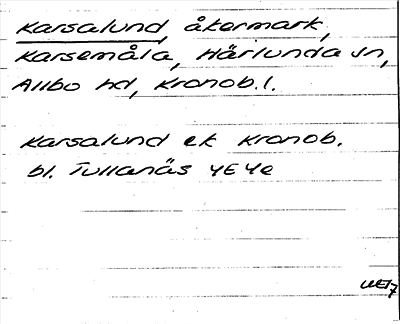 Karsalund, åkermark,
Karsemåla, Härlunda sn,
Allbo hd, Kronob.l.
Karsalund ek Kronob.
bl. Tullanäs 4E4e